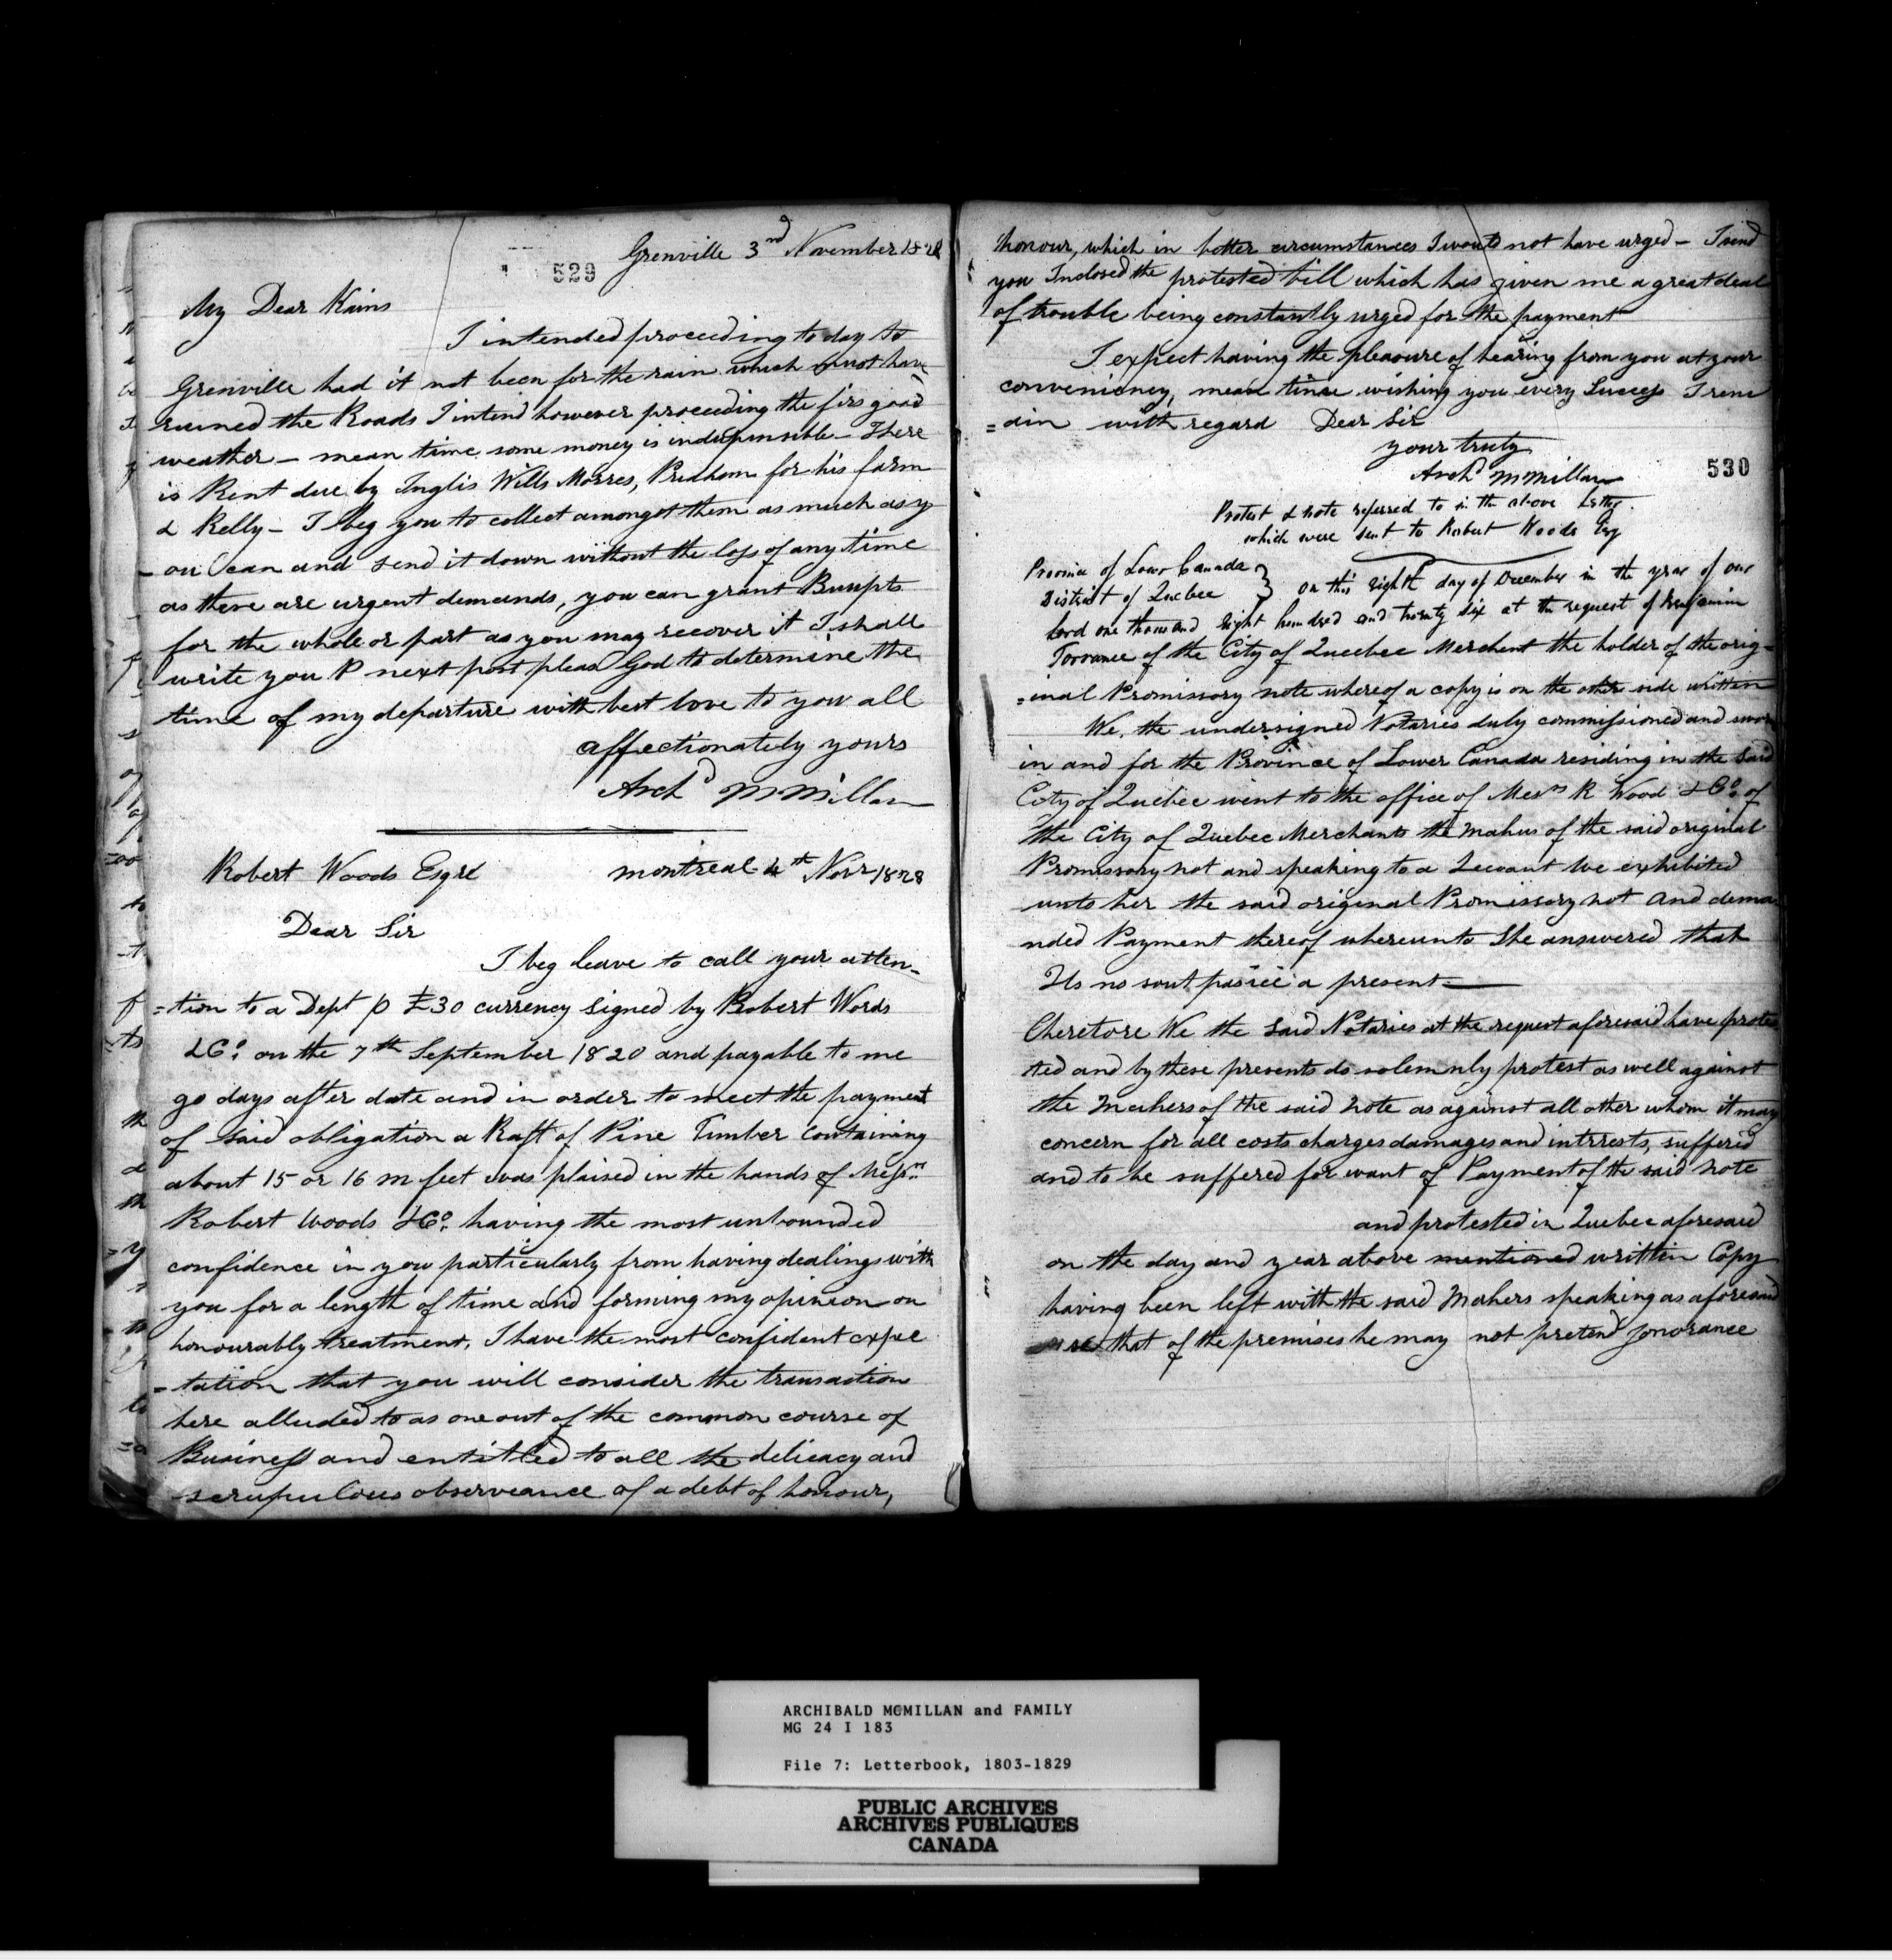 529
Grenville 3nd November 1828
My Dear Kains
I intended proceeding to day to
Grenville had it not been for the rain which must have
ruined the Roads I intend however proceeding the firs good
weather — mean time some money is indispensible — There
is Rent due by Inglis Wills Morres, Pridham for his farm
& Kelly — I beg you to collect amongst them as much as y
- ou can and send it down without the loss of any time
as there are urgent demands, you can grant
for the whole or part as you may recover it I shall
write you P next post pleas God to determine the
time of my departure with best love to you all
affectionately yours
Archd McMillan
Robert Woods Esqre montreal 4th Novr 1828
Dear Sir
I beg leave to call your atten-
=tion to a Dept p £30 currency signed by Robert Words
& Co. on the 7th September 1820 and payable to me
90 days after date and in order to meet the payment
of said obligation a Raft of Pine Timber containing
about 15 or 16 m feet was plaised in the hands of Messrs
Robert Woods & Co. having the most unbounded
confidence in you particularly from having dealings with
you for a length of time and forming my opinion on
honourably treatment, I have the most confident expec
-tation that you will consider the transaction
here alluded to as one out of the common course of
Business and entitled to all the delicacy and
scrupulous observeance of a debt of honour,
honour, which in better circumstances I would not have urged — I send
you Inclosed the protested bill which has given me a great deal
of trouble being constantly urged for the payment
I expect having the pleasure of hearing from you at your
conveniency, mean time wishing you every Success I rem
=ain with regard Dear Sir
your truly
Archd McMillan
530
Protest & note referred to in the above Letter.
which were sent to Robert Woods Esq
Province of Lower Canada }
District of Quebec } on this eighth day of December in the year of our
Lord one thousand eight hundred and twenty six at the request of Benjamin
Torrance of the City of Queebec Merchent the holder of the orig-
=inal Promissory note whereof a copy is on the other side written
We, the undersigned Notaries duly commissioned and sworn
in and for the Province of Lower Canada residing in the said
City of Quebec went to the office of Messrs R Wood & Co. of
the City of Quebec Merchants the Makers of the said original
Promissory not and speaking to a Servant we exhibited
unto her the said original Promissory not and dema
nded Payment thereof whereunto She answered that
Ils no sont pasiec a present —
Therefore We the said Notaries at the request aforesaid have protes
ted and by these presents do solemnly protest as well against
the Makers of the said note as against all other whom it may
concern for all costs charges damages and intrrests, suffered
and to be suffered for want of Payment of the said note
and protested in Quebec aforesaid
on the day and year above mentioned written Copy
having been left with the said Makers speaking as aforesaid
that of the premises he may not pretend Jgnorance
ARCHIBALD MCMILLAN and FAMILY
MG 24 I 183
File 7: Letterbook, 1803-1829
PUBLIC ARCHIVES
ARCHIVES PUBLIQUES
CANADA